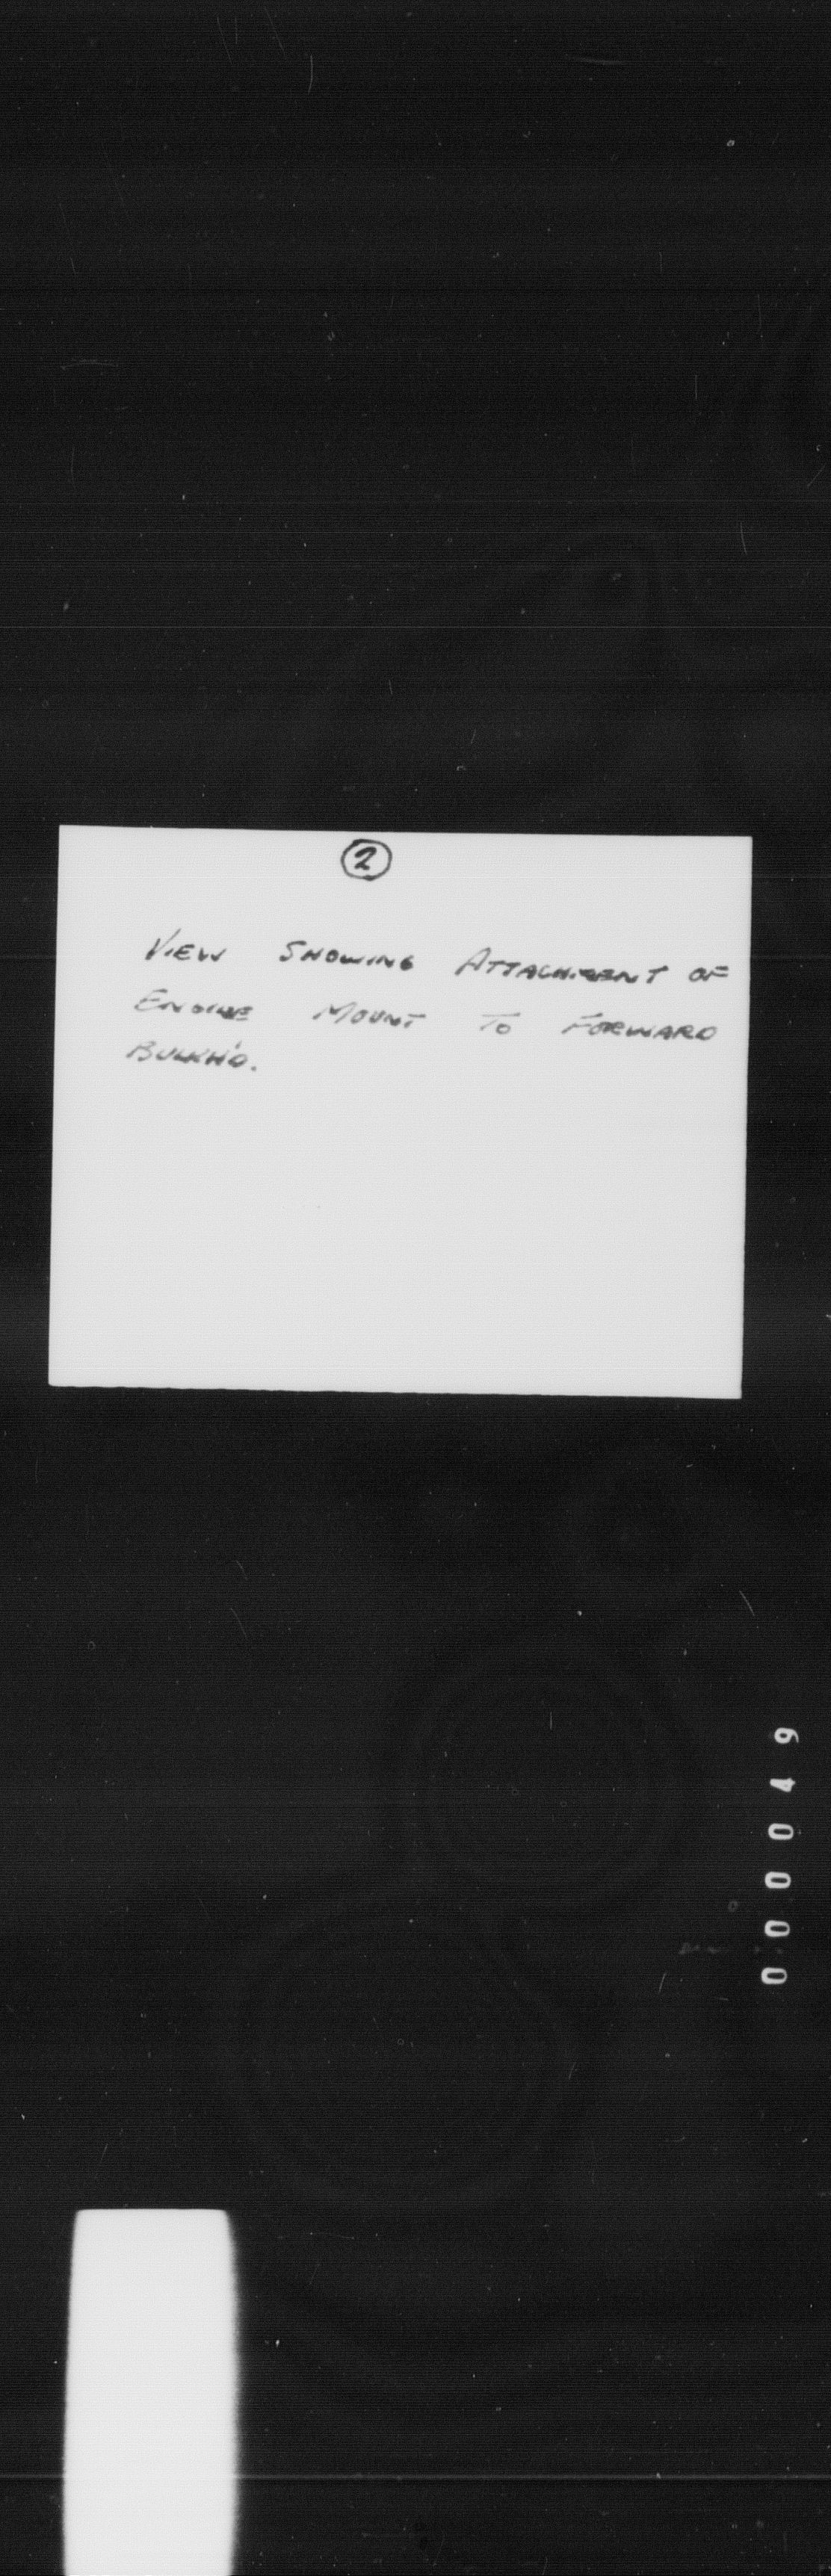 2
VIEW SHOWING ATTACHMENT OF
ENGINE MOUNT TO FORWARD
BULKH'D.
000049